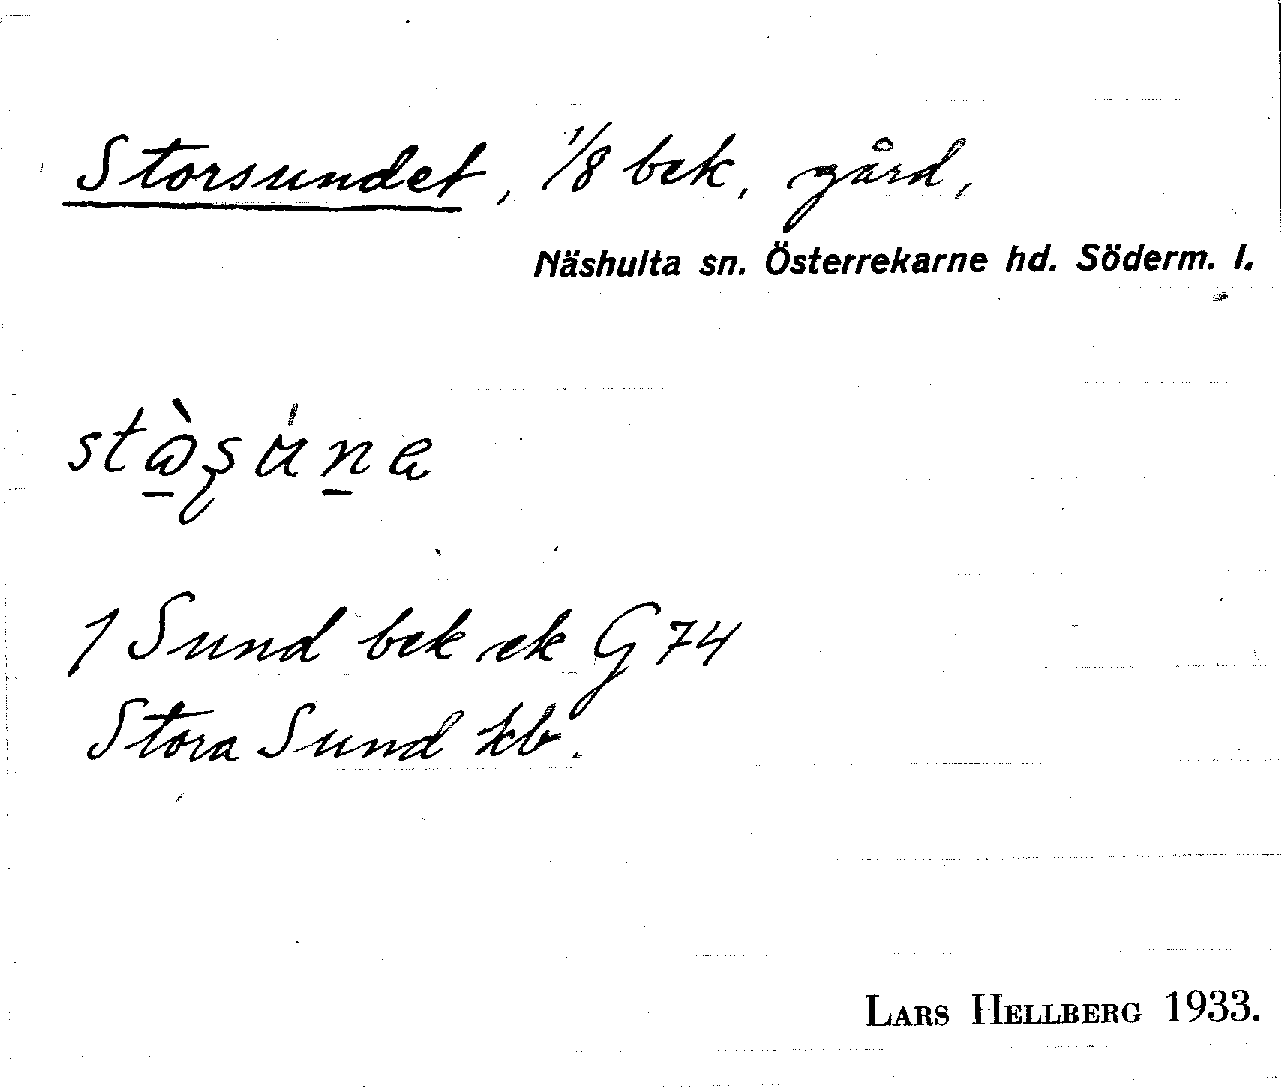 Storsundet, 1/8 bek. gård,
Näshulta sn. Österrekarne hd. Söderm. l.
1 Sund bek ek G 74
Stora Sund kb.
LARS HELLBERG 1933.